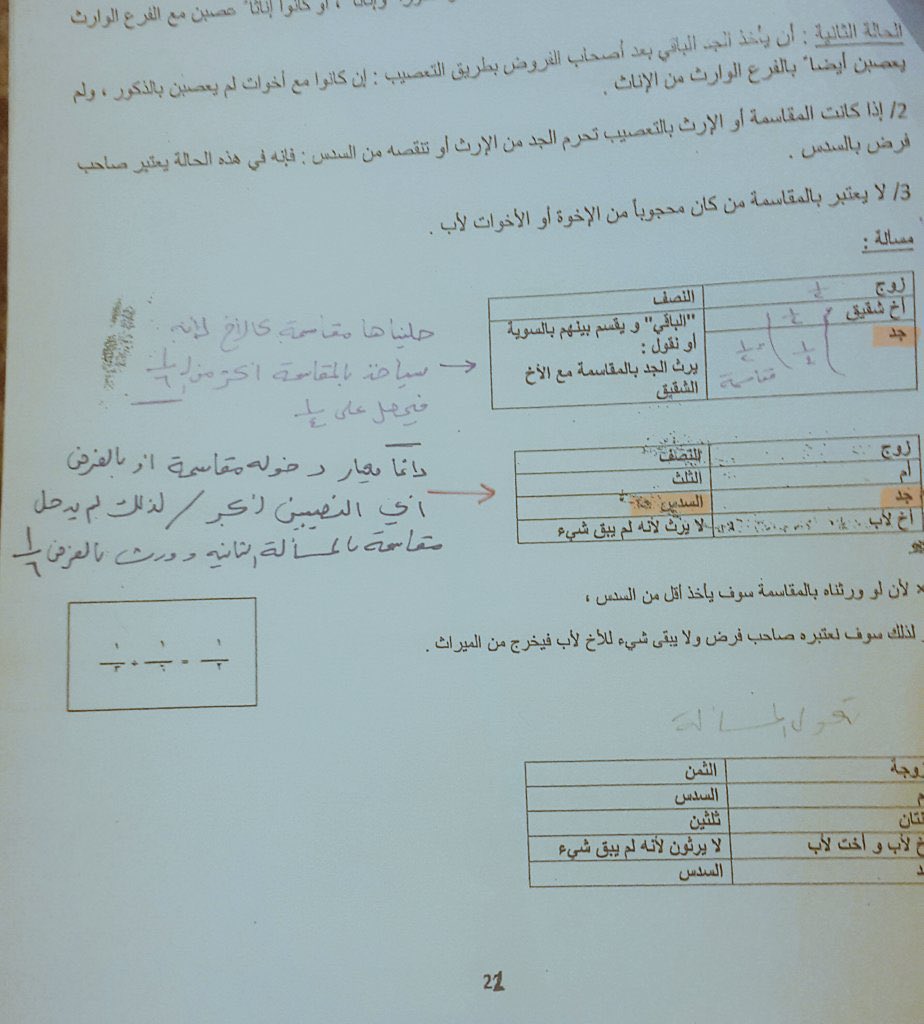 ، أو كانوا إناثاً عصبن مع الفرع الوارث
الحالة الثانية : أن يأخذ الجد الباقي بعد أصحاب الفروض بطريق التعصيب : إن كانوا مع أخوات لم يعصبن بالذكور ، ولم
يعصبن أيضاً بالفرع الوارث من الإناث .
2/ إذا كانت المقاسمة أو الإرث بالتعصيب تحرم الجد من الإرث أو تنقصه من السدس : فإنه في هذه الحالة يعتبر صاحب
فرض بالسدس .
3/ لا يعتبر بالمقاسمة من كان محجوباً من الإخوة أو الأخوات لأب .
مسالة :
زوج النصف
أخ شقيق "الباقي" و يقسم بينهم بالسوية
جد أو نقول :
يرث الجد بالمقاسمة مع الأخ
الشقيق
مقاسمة
حليناها مقاسمة كالأخ لأنه
سيأخذ بالمقاسمة اكثر من 1/6
فيحصل على 1/4
زوج النصف
أم الثلث
جد السدس
أخ لأب لا يرث لأنه لم يبق شيء
دائماً معيار دخوله مقاسمة او بالفرض
أي النصيبين اكبر / لذلك لم يدخل
مقاسمة بالمسألة الثانية وورث بالفرض 1/6
× لأن لو ورثناه بالمقاسمة سوف يأخذ أقل من السدس ،
لذلك سوف نعتبره صاحب فرض ولا يبقى شيء للأخ لأب فيخرج من الميراث .
تعول المسألة
زوجة الثمن
السدس
ثلثين
لأب و أخت لأب لا يرثون لأنه لم يبق شيء
السدس
22